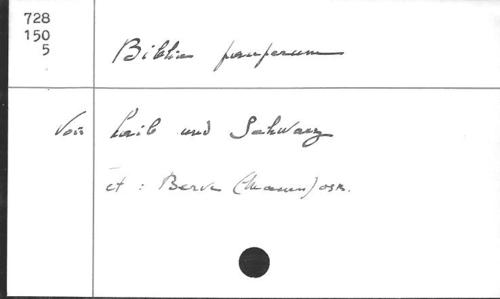 728
150
5
Biblia pauperum
Voir Laib und Schwarz
et : Berve (Maurus) OSB.